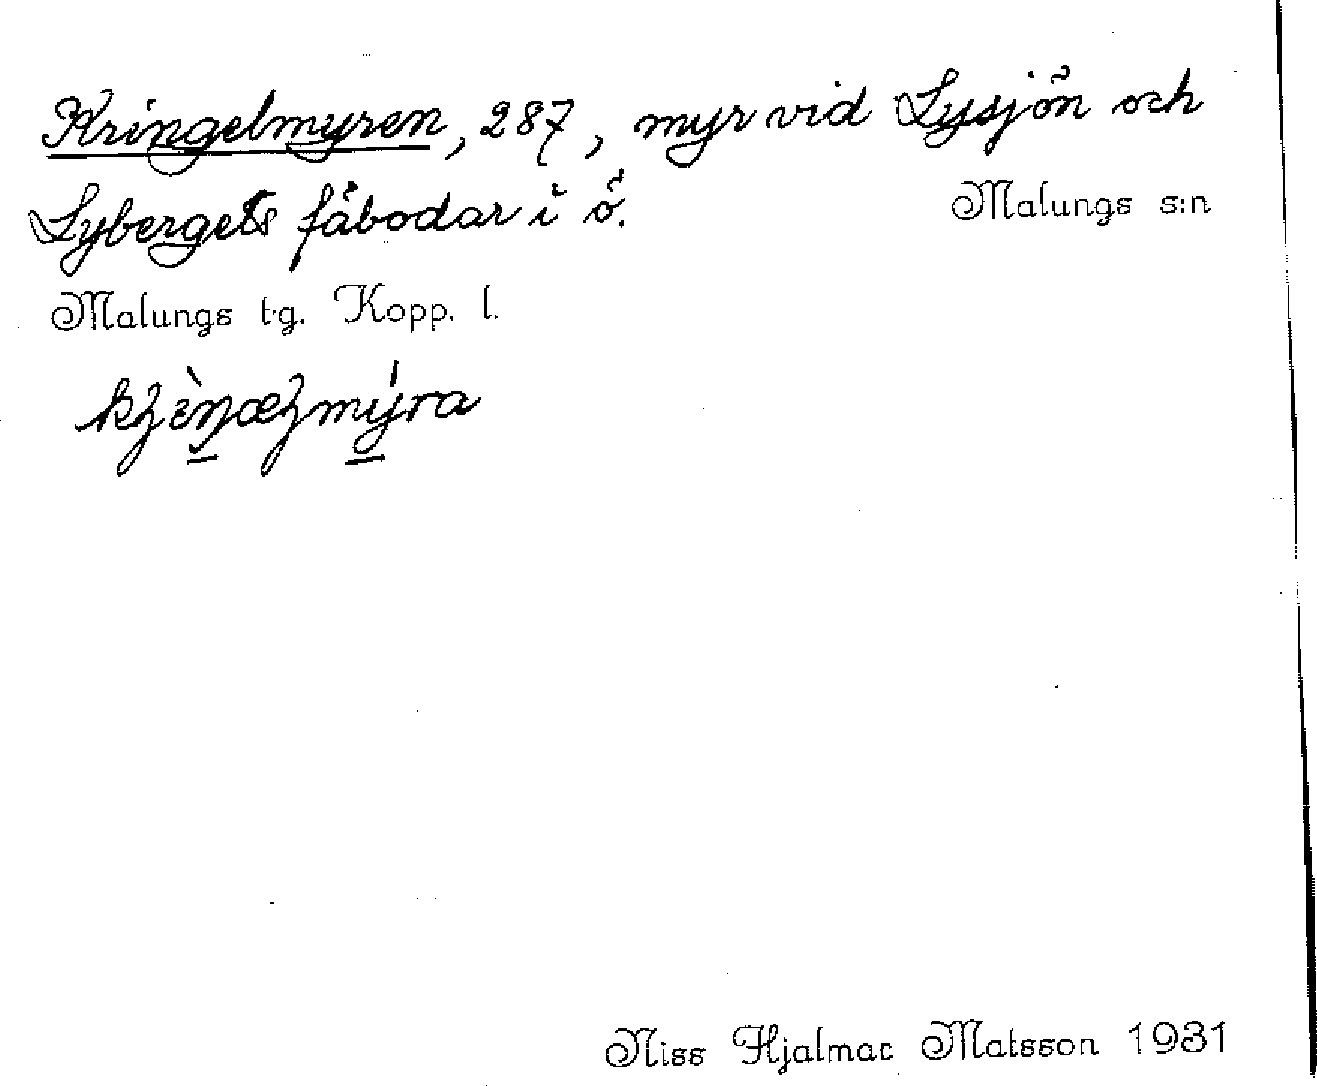 Kringelmyren, 287, myr vid Lysjön och
Lybergets fäbodar i ö.
Malungs s:n
Malungs t.g. Kopp. l.
Niss Hjalmar Matsson 1931